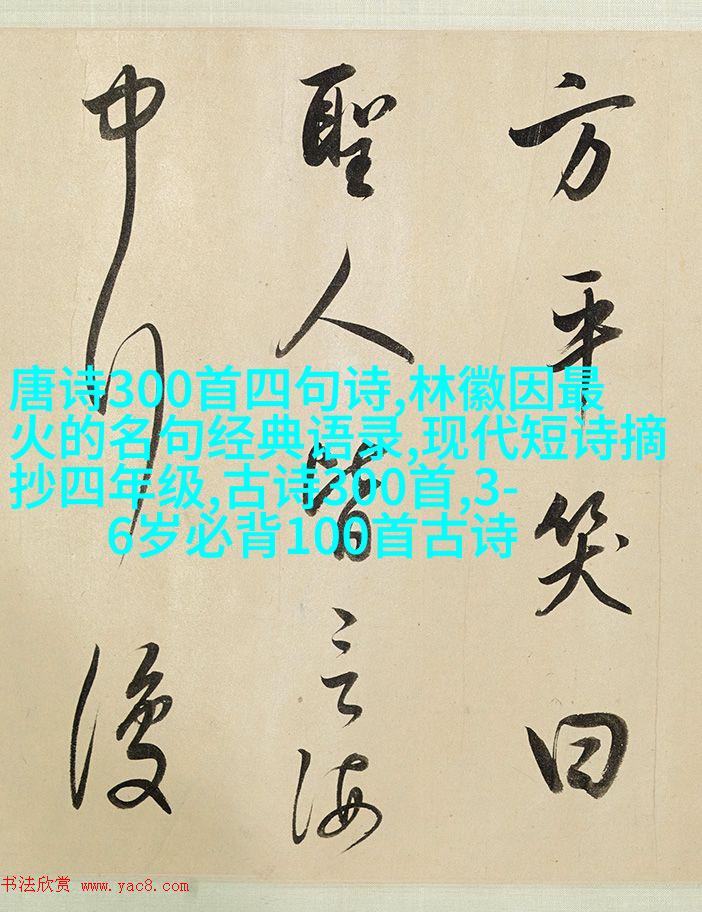 方平笑曰
聖人皆言海
中行復
唐诗300首四句诗,林徽因最
火的名句经典语录,现代短诗摘
抄四年级,古诗300首,3-
6岁必背100首古诗
书法欣赏 www.yac8.com